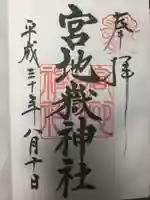 奉拝
宮地嶽神社
平成三十年八月十日